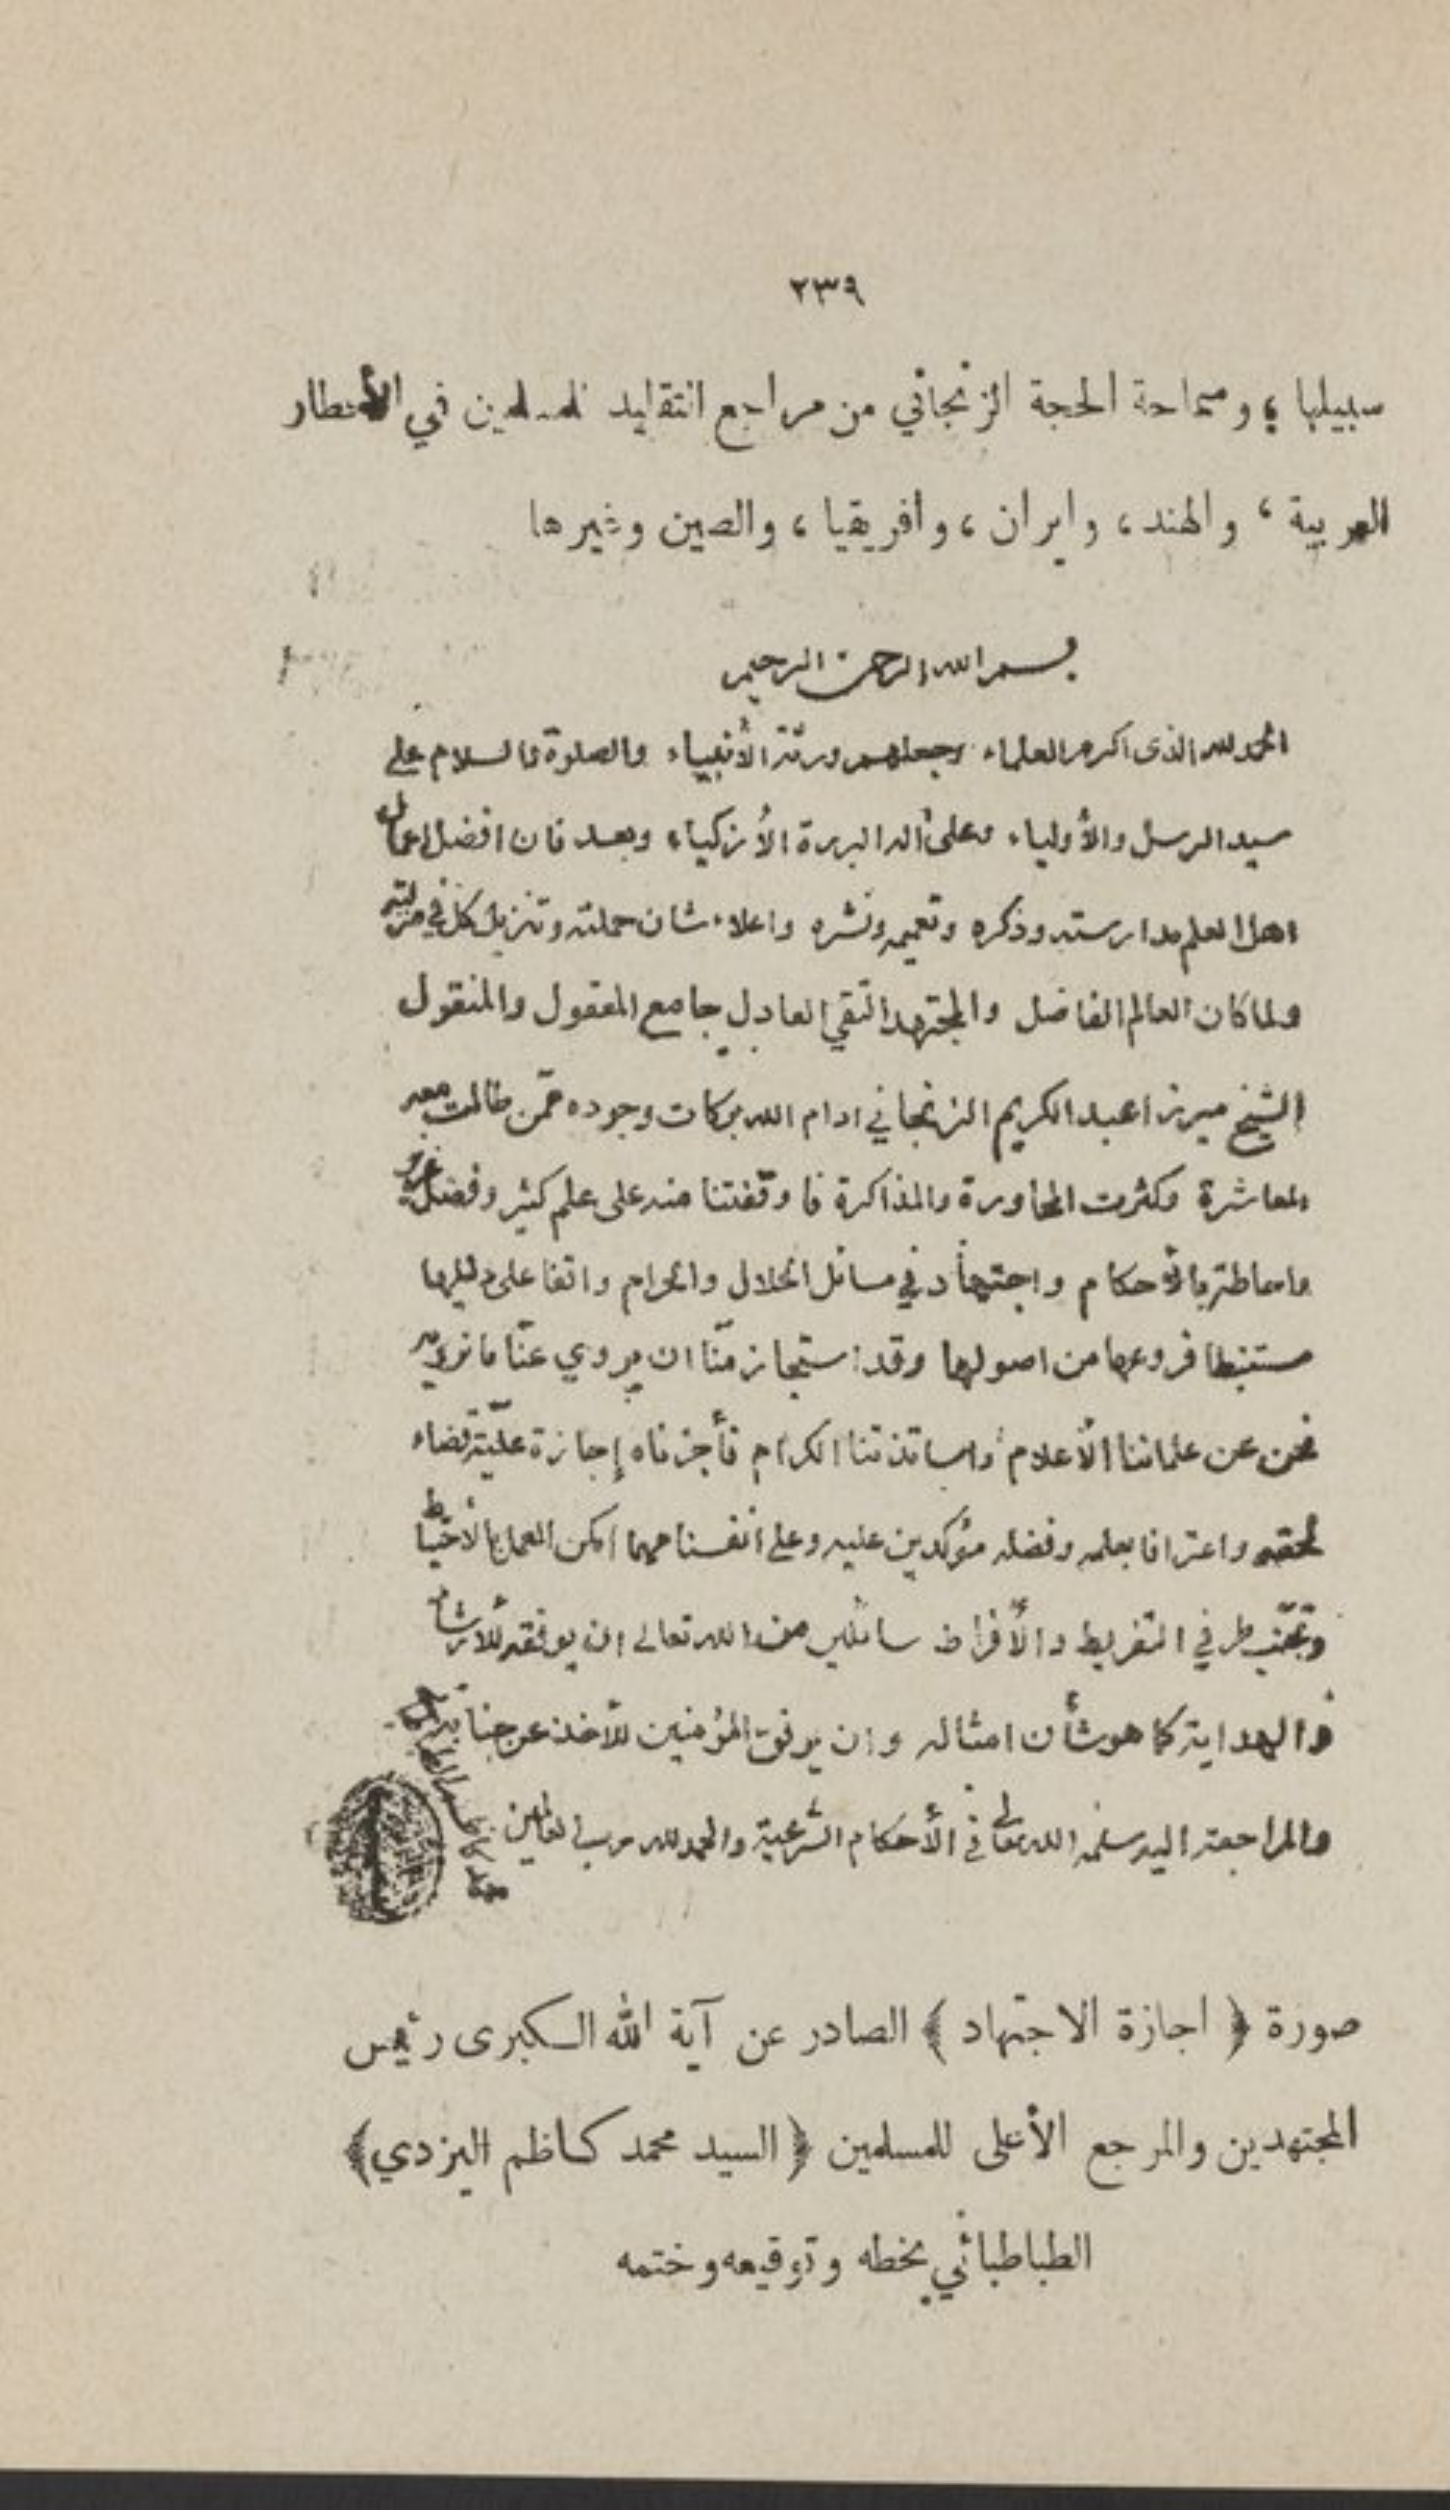 ٢٣٩
سبيلها ؛ وسماحة الحجة الزنجاني من مراجع التقليد للمسلمين في الأقطار
العربية ، والهند ، وايران ، وافريقيا ، والصين وغيرها
بسم الله الرحمن الرحيم
الحمد لله الذى اكرم العلماء وجعلهم ورثة الأنبياء والصلوة والسلام على
سيد الرسل والأولياء وعلى آله البررة الأزكياء وبعد فان افضل اعمال
اهل العلم مدارسته وذكره وتعميمه ونشره واعلاء شان حملته وتنزيل كل في منزلته
ولما كان العالم الفاضل والمجتهد التقي العادل جامع المعقول والمنقول
الشيخ ميرزا عبد الكريم الزنجاني ادام الله بركات وجوده ممّن طالت معه
المعاشرة وكثرت المحاورة والمذاكرة فاوقفتنا منه على علم كثير وفضل غزير
واحاطة بالأحكام واجتهاد في مسائل الحلال والحرام واقفا على دليلها
مستنبطا فروعها من اصولها وقد استجاز منّا ان يروي عنّا ما نرويه
نحن عن علمائنا الأعلام وأساتذتنا الكرام فأجزناه إجازة علميّة قضاء
لحقه واعترافا بعلمه وفضله مؤكدين عليه وعلى انفسنا مهما امكن العمل بالأحتياط
وتجنّب طرفي التفريط والأفراط سائلين من الله تعالى ان يوفقه للأرشاد
والهداية كما هو شأن امثاله وان يوفق المؤمنين للأخذ عن جنابه
والمراجعة اليه سلمه الله تعالى في الأحكام الشرعية والحمد لله رب العالمين
صورة ﴿ اجازة الاجتهاد ﴾ الصادر عن آية الله الكبرى رئيس
المجتهدين والمرجع الأعلى للمسلمين ﴿ السيد محمد كاظم اليزدي ﴾
الطباطبائي بخطه وتوقيعه وختمه